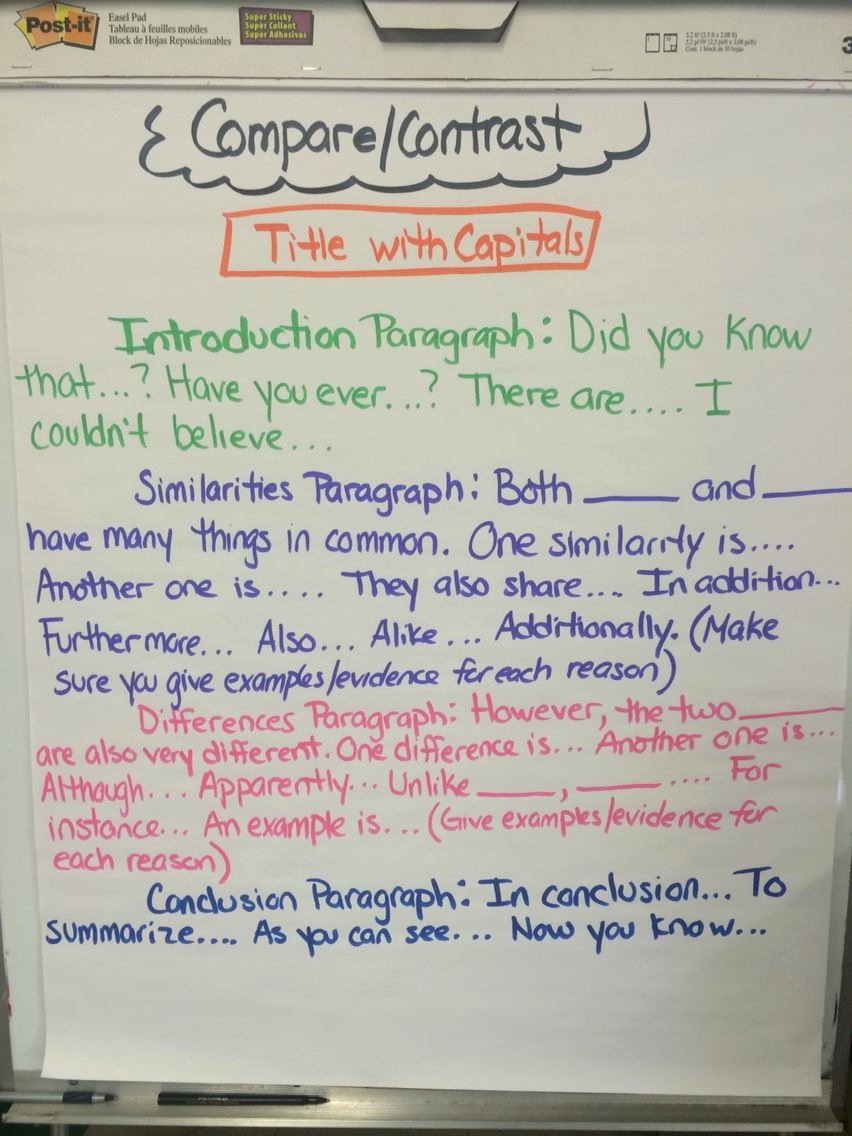 Post-it
Easel Pad
Tableau à feuilles mobiles
Block de Hojas Reposicionables
Super Sticky
Super Collant
Super Adhesivas
5.2 ft² (2.5 ft x 2.08 ft)
Cont. 1 block de 30 hojas
3
Compare/Contrast
Title with Capitals
Introduction Paragraph: Did you know
that...? Have you ever...? There are.... I
couldn't believe...
Similarities Paragraph: Both ____ and ____
have many things in common. One similarity is....
Another one is.... They also share.... In addition...
Furthermore... Also... Alike... Additionally. (Make
sure you give examples/evidence for each reason)
Differences Paragraph: However, the two ____
are also very different. One difference is... Another one is...
Although... Apparently... Unlike ____, ____ .... For
instance... An example is... (Give examples/evidence for
each reason)
Conclusion Paragraph: In conclusion... To
summarize.... As you can see... Now you know...